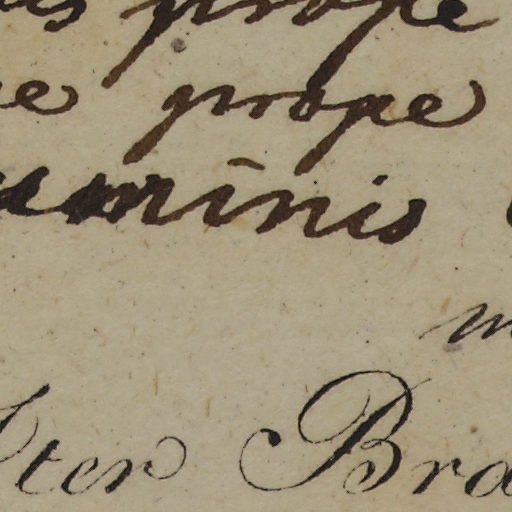 prope
prope
uminis
ster Bra